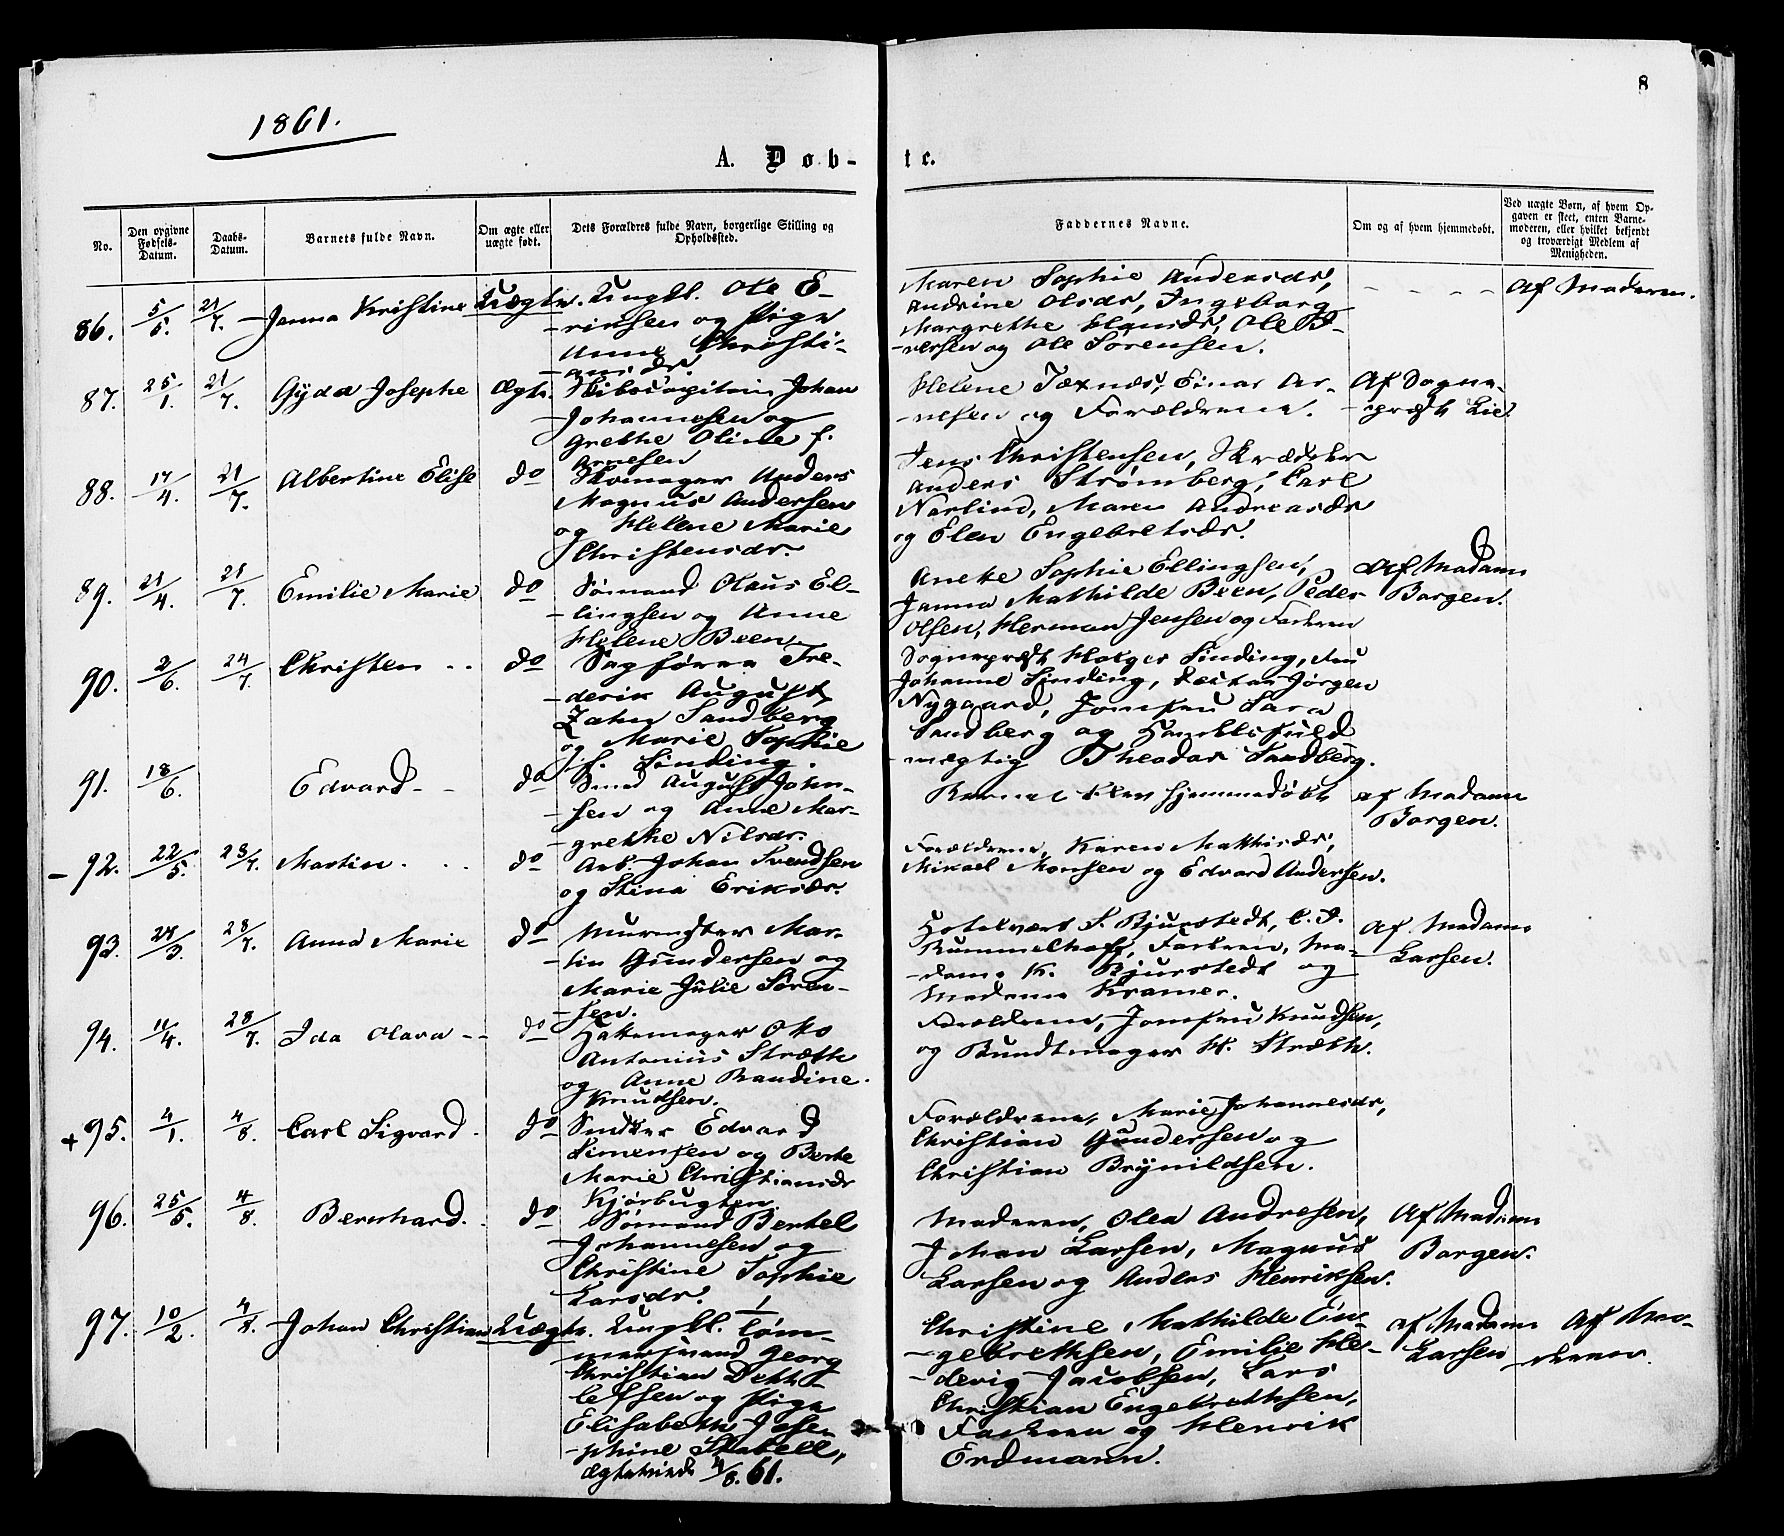 8
1861.
A. Døb-te.
No.
Den opgivne Fødsels-Datum.
Daabs-Datum.
Barnets fulde Navn.
Om ægte eller uægte født.
Dets Forældres fulde Navn, borgerlige Stilling og Opholdssted.
Faddernes Navne.
Om og af hvem hjemmedøbt.
Ved uægte Børn, af hvem Opgaven er skeet, enten Barnemoderen, eller hvilket bekjendt og troværdigt Medlem af Menigheden.
86. 5/5. 21/7. Janna Kristine Uægte. Ungkl. Ole E-
-riksen og Pige
Anne Christi-
-ansdr.
Maren Sophie Andersdr,
Andrine Olsdr, Ingeborg
Margrethe Hansdr, Ole I-
-versen og Ole Sørensen.
- - - -
Af Moderen.
87. 25/1. 21/7. Gyda Josephe Ægte. Skibscapitain Johan
Johannesen og
Grethe Oline f.
Arnesen
Helene Taxnæs, Einar Ar-
-nesen og Forældrene.
Af Sogne-
-præst Lie.
88. 17/4. 21/7. Albertine Elise do Skomager Anders
Magnus Andersen
og Helene Marie
Christensdr.
Jens Christensen, Skrædder
Anders Strømberg, Carl
Norlind, Maren Andreasdr
og Elen Engebretsdr.
89. 21/4. 21/7. Emilie Marie do Sømand Olaus El-
-lingsen og Anne
Helene Been.
Aneke Sophie Ellingsen,
Janna Mathilde Been, Peder
Olsen, Herman Jensen og Faderen
Af Madam
Borgen.
90. 2/6. 24/7. Christen - - do Sagfører Fre-
-derik August
Zahn Sandberg
og Marie Sophie
f. Sinding.
Sognepræst Holger Sinding, Fru
Johanne Sinding, Jørgen
Nygaard, Jomfru Sara
Sandberg og Handelsfuld-
-mægtig Theodor Sandberg.
91. 18/6. Edvard - - do Smed August John-
-sen og Anne Mar-
-grethe Nilsdr.
Barnet blev hjemmedøbt
af Madam
Borgen.
- 92. 22/5. 28/7. Martin. . . do Arb. Johan Svendsen
og Stina Eriksdr.
Forældrene, Karen Mathisdr,
Mikael Monsen og Edvard Andersen.
93. 24/3. 28/7. Anna Marie do Murmester Mar-
-tin Gundersen og
Marie Julie Søren-
-sen.
Hotelvært S. Bjurstedt, C. I.
Rummelhoff, Faderen, Ma-
-dame K. Bjurstedt og
Madame Kramer.
Af Madame
Larsen.
94. 11/4. 28/7. Ida Olava - - do Hattemager Oto
Antonius Stræth
og Anne Randine
Knudsen.
Forældrene, Jomfru Knudsen,
og Bundtmager H. Stræth.
+ 95. 4/1. 4/8. Carl Sigvard. do Snedker Edvard
Simensen og Berte
Marie Christiansdr
Kjørbugten.
Forældrene, Marie Johannesdr,
Christian Gundersen og
Christian Brynildsen.
96. 25/5. 4/8. Bernhard. . do Sømand Bertel
Johannesen og
Christine Sophie
Larsdr.
Moderen, Olea Andresen,
Johan Larsen, Magnus
Larsen og Andreas Henriksen.
Af Madam
Borgen.
97. 10/2. 4/8. Johan Christian Uægte. Ungkl. Tøm-
-mermand Georg
Christian Dethl-
-efsen og Pige
Elisabeth Jose-
-phine Stabell,
Ægteviede 4/8. 61.
Christine Mathilde En-
-gebrethsen, Emilie He-
-devig Jacobsen, Lars
Christian Engebrethsen,
Faderen og Henrik
Erdmann.
af Madam
Larsen
Af Mo-
-deren.